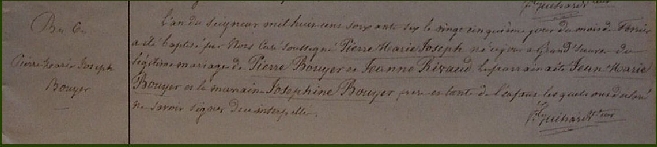 Bn 6.
Pierre Marie Joseph
Bouyer
L'an du Seigneur mil huit cent soixante six le vingt cinquième jour du mois de Février
a été baptisé par Nous Curé soussigné Pierre Marie Joseph né
légitime mariage de Pierre Bouyer et Jeanne Rivaud le parrain a été Jean Marie
Bouyer et la marraine Joséphine Bouyer parents de l'enfant lesquels ont déclaré
ne savoir signer de ce interpellé.